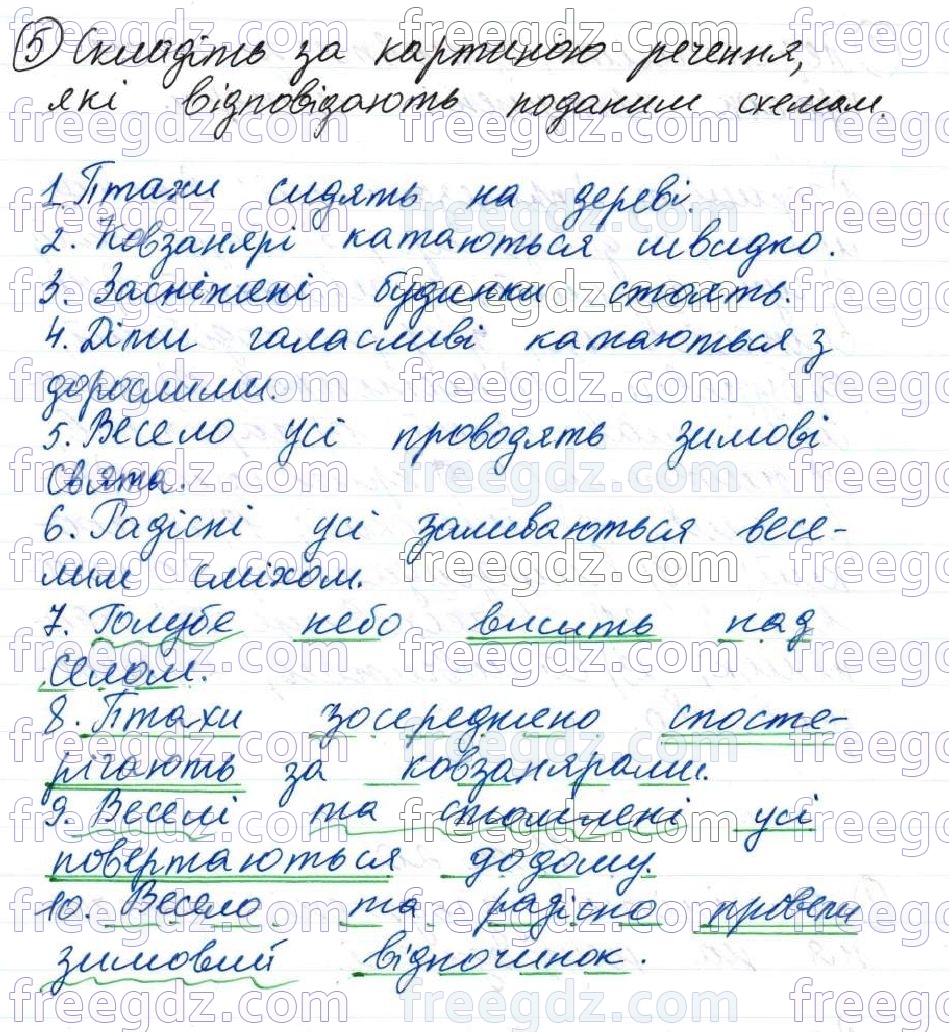 5 Складіть за картиною речення,
які відповідають поданим схемам.
1. Птахи сидять на дереві.
2. Ковзанярі катаються швидко.
3. Засніжені будинки стоять.
4. Діти галасливі катаються з
дорослими.
5. Весело усі проводять зимові
свята.
6. Радісні усі заливаються весе-
лим сміхом.
7. Голубе небо висить над
селом.
8. Птахи зосереджено спосте-
рігають за ковзанярами.
9. Веселі та стомлені усі
повертаються додому.
10. Весело та радісно провели
зимовий відпочинок.
freegdz.com